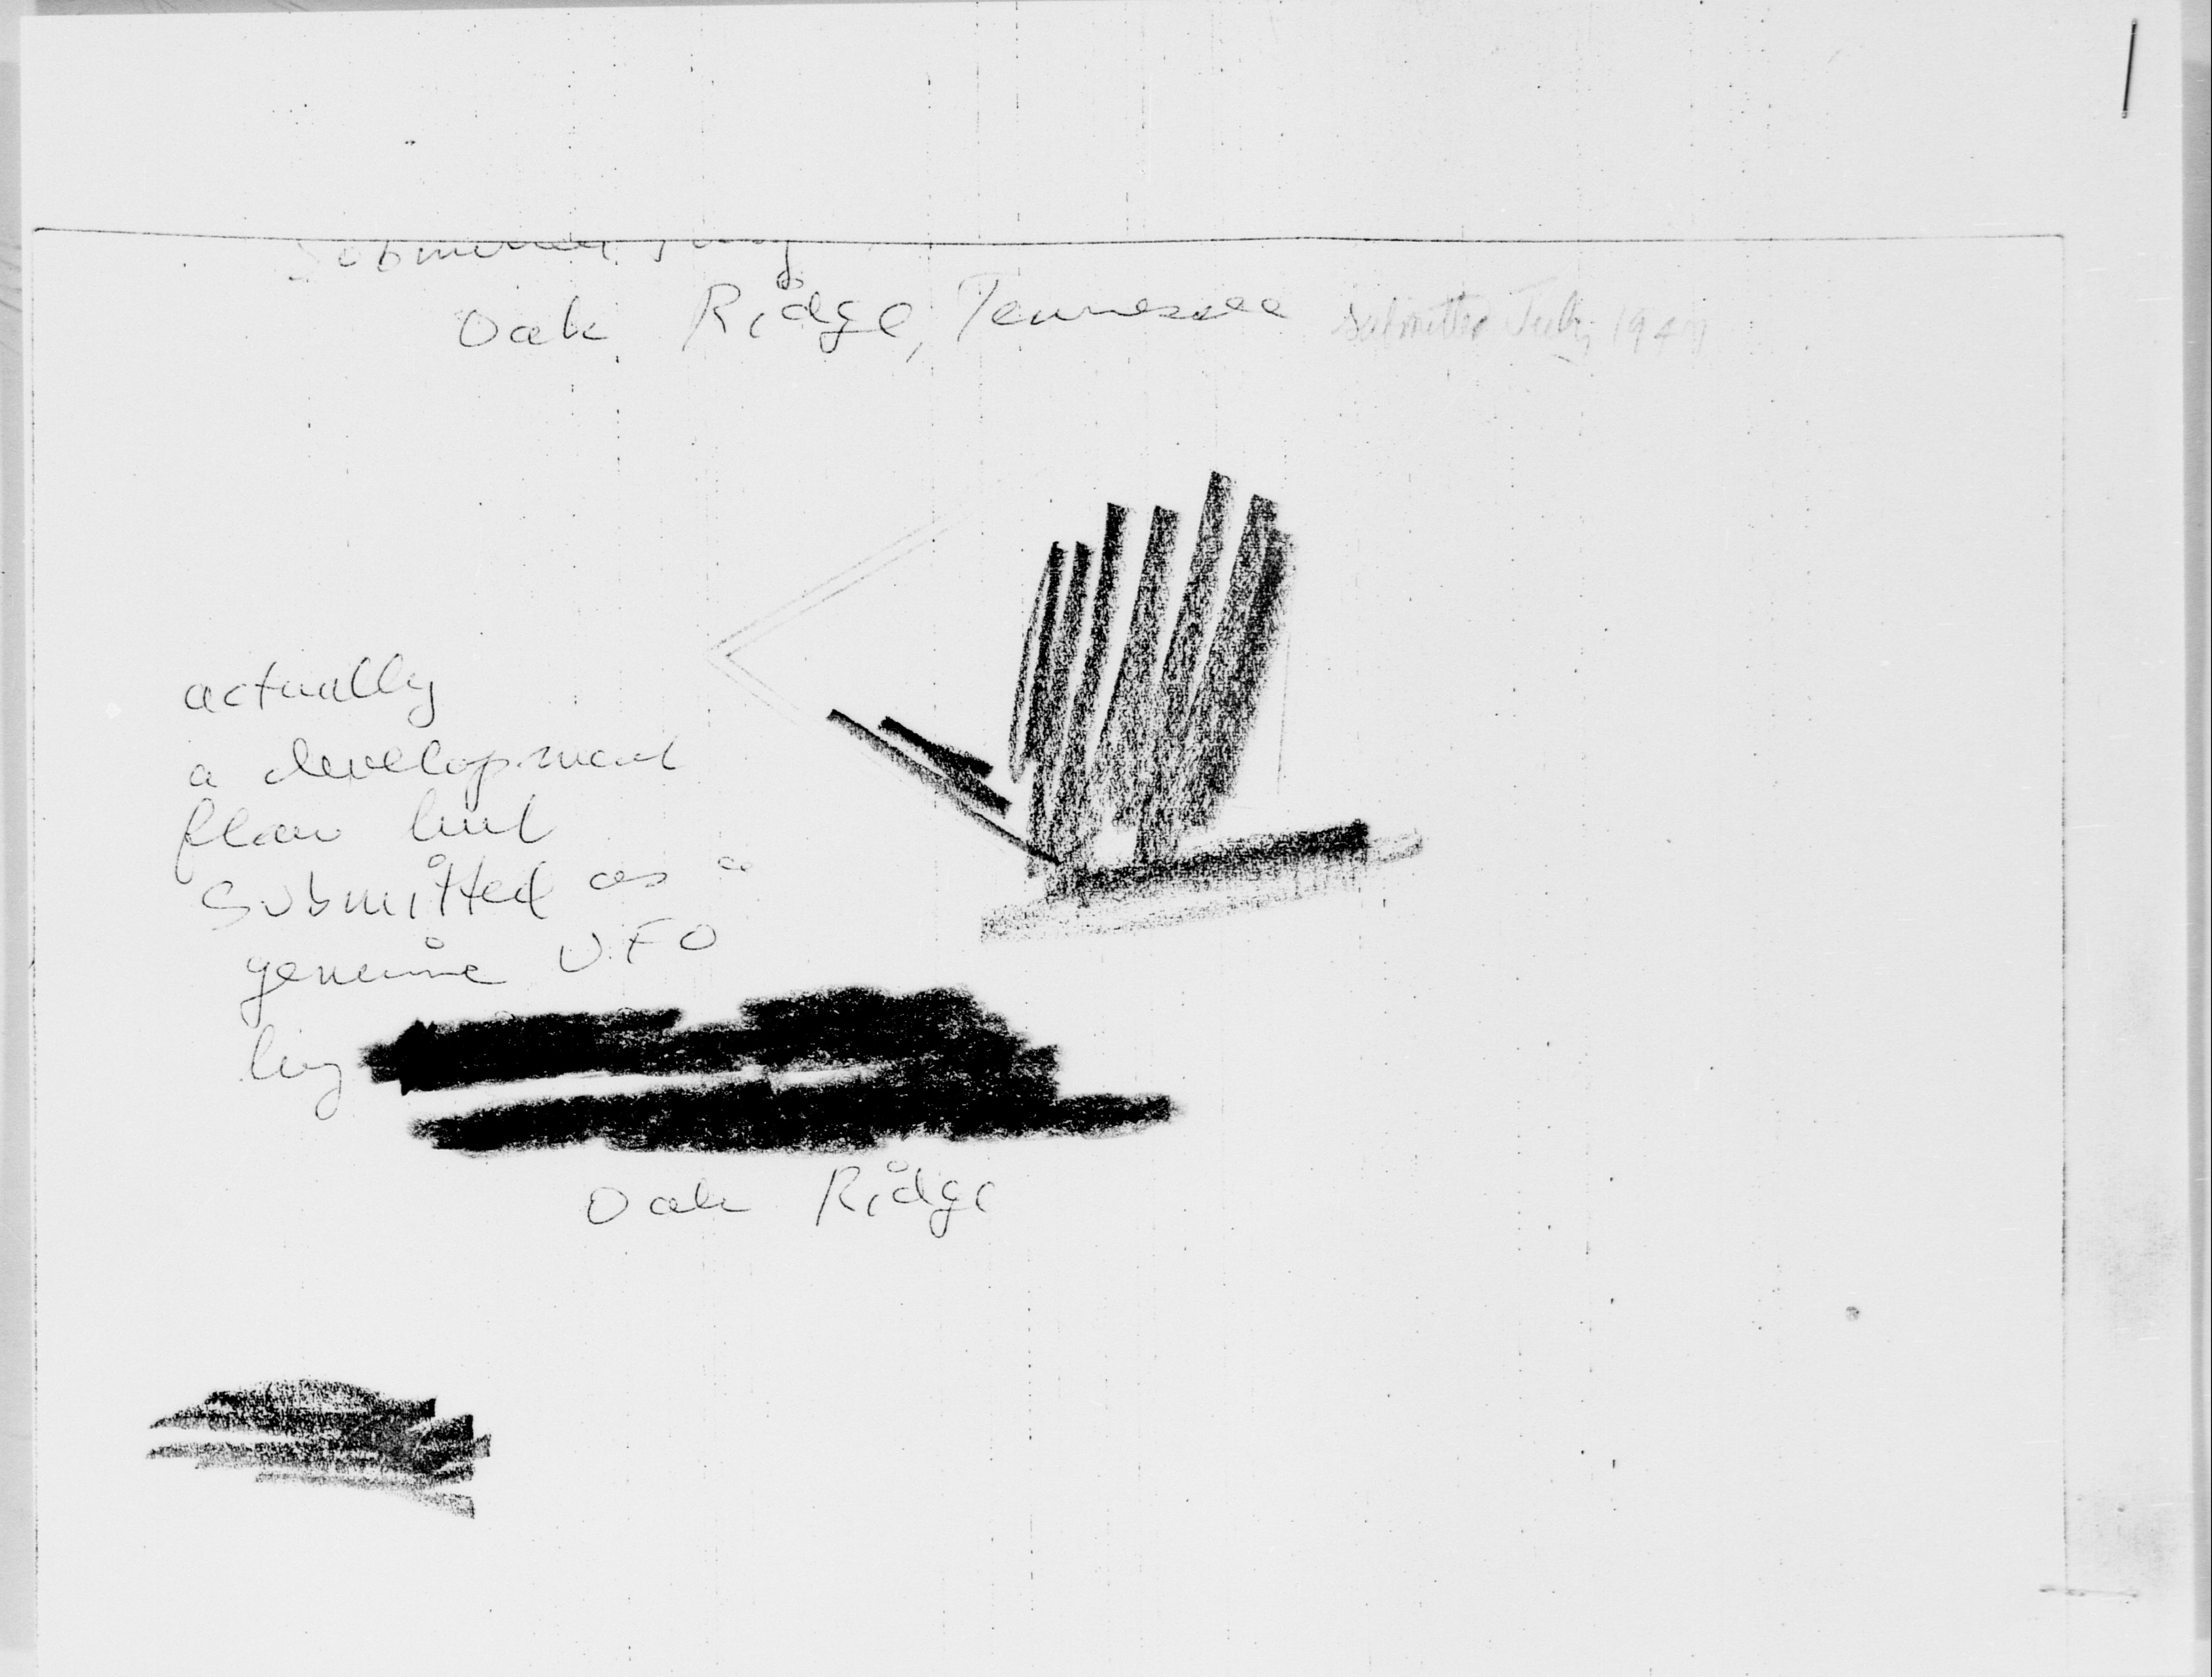 Submitted July
Oak Ridge, Tennessee submitted July 1947
actually
a development
flaw but
submitted as a
genuine UFO
by
Oak Ridge